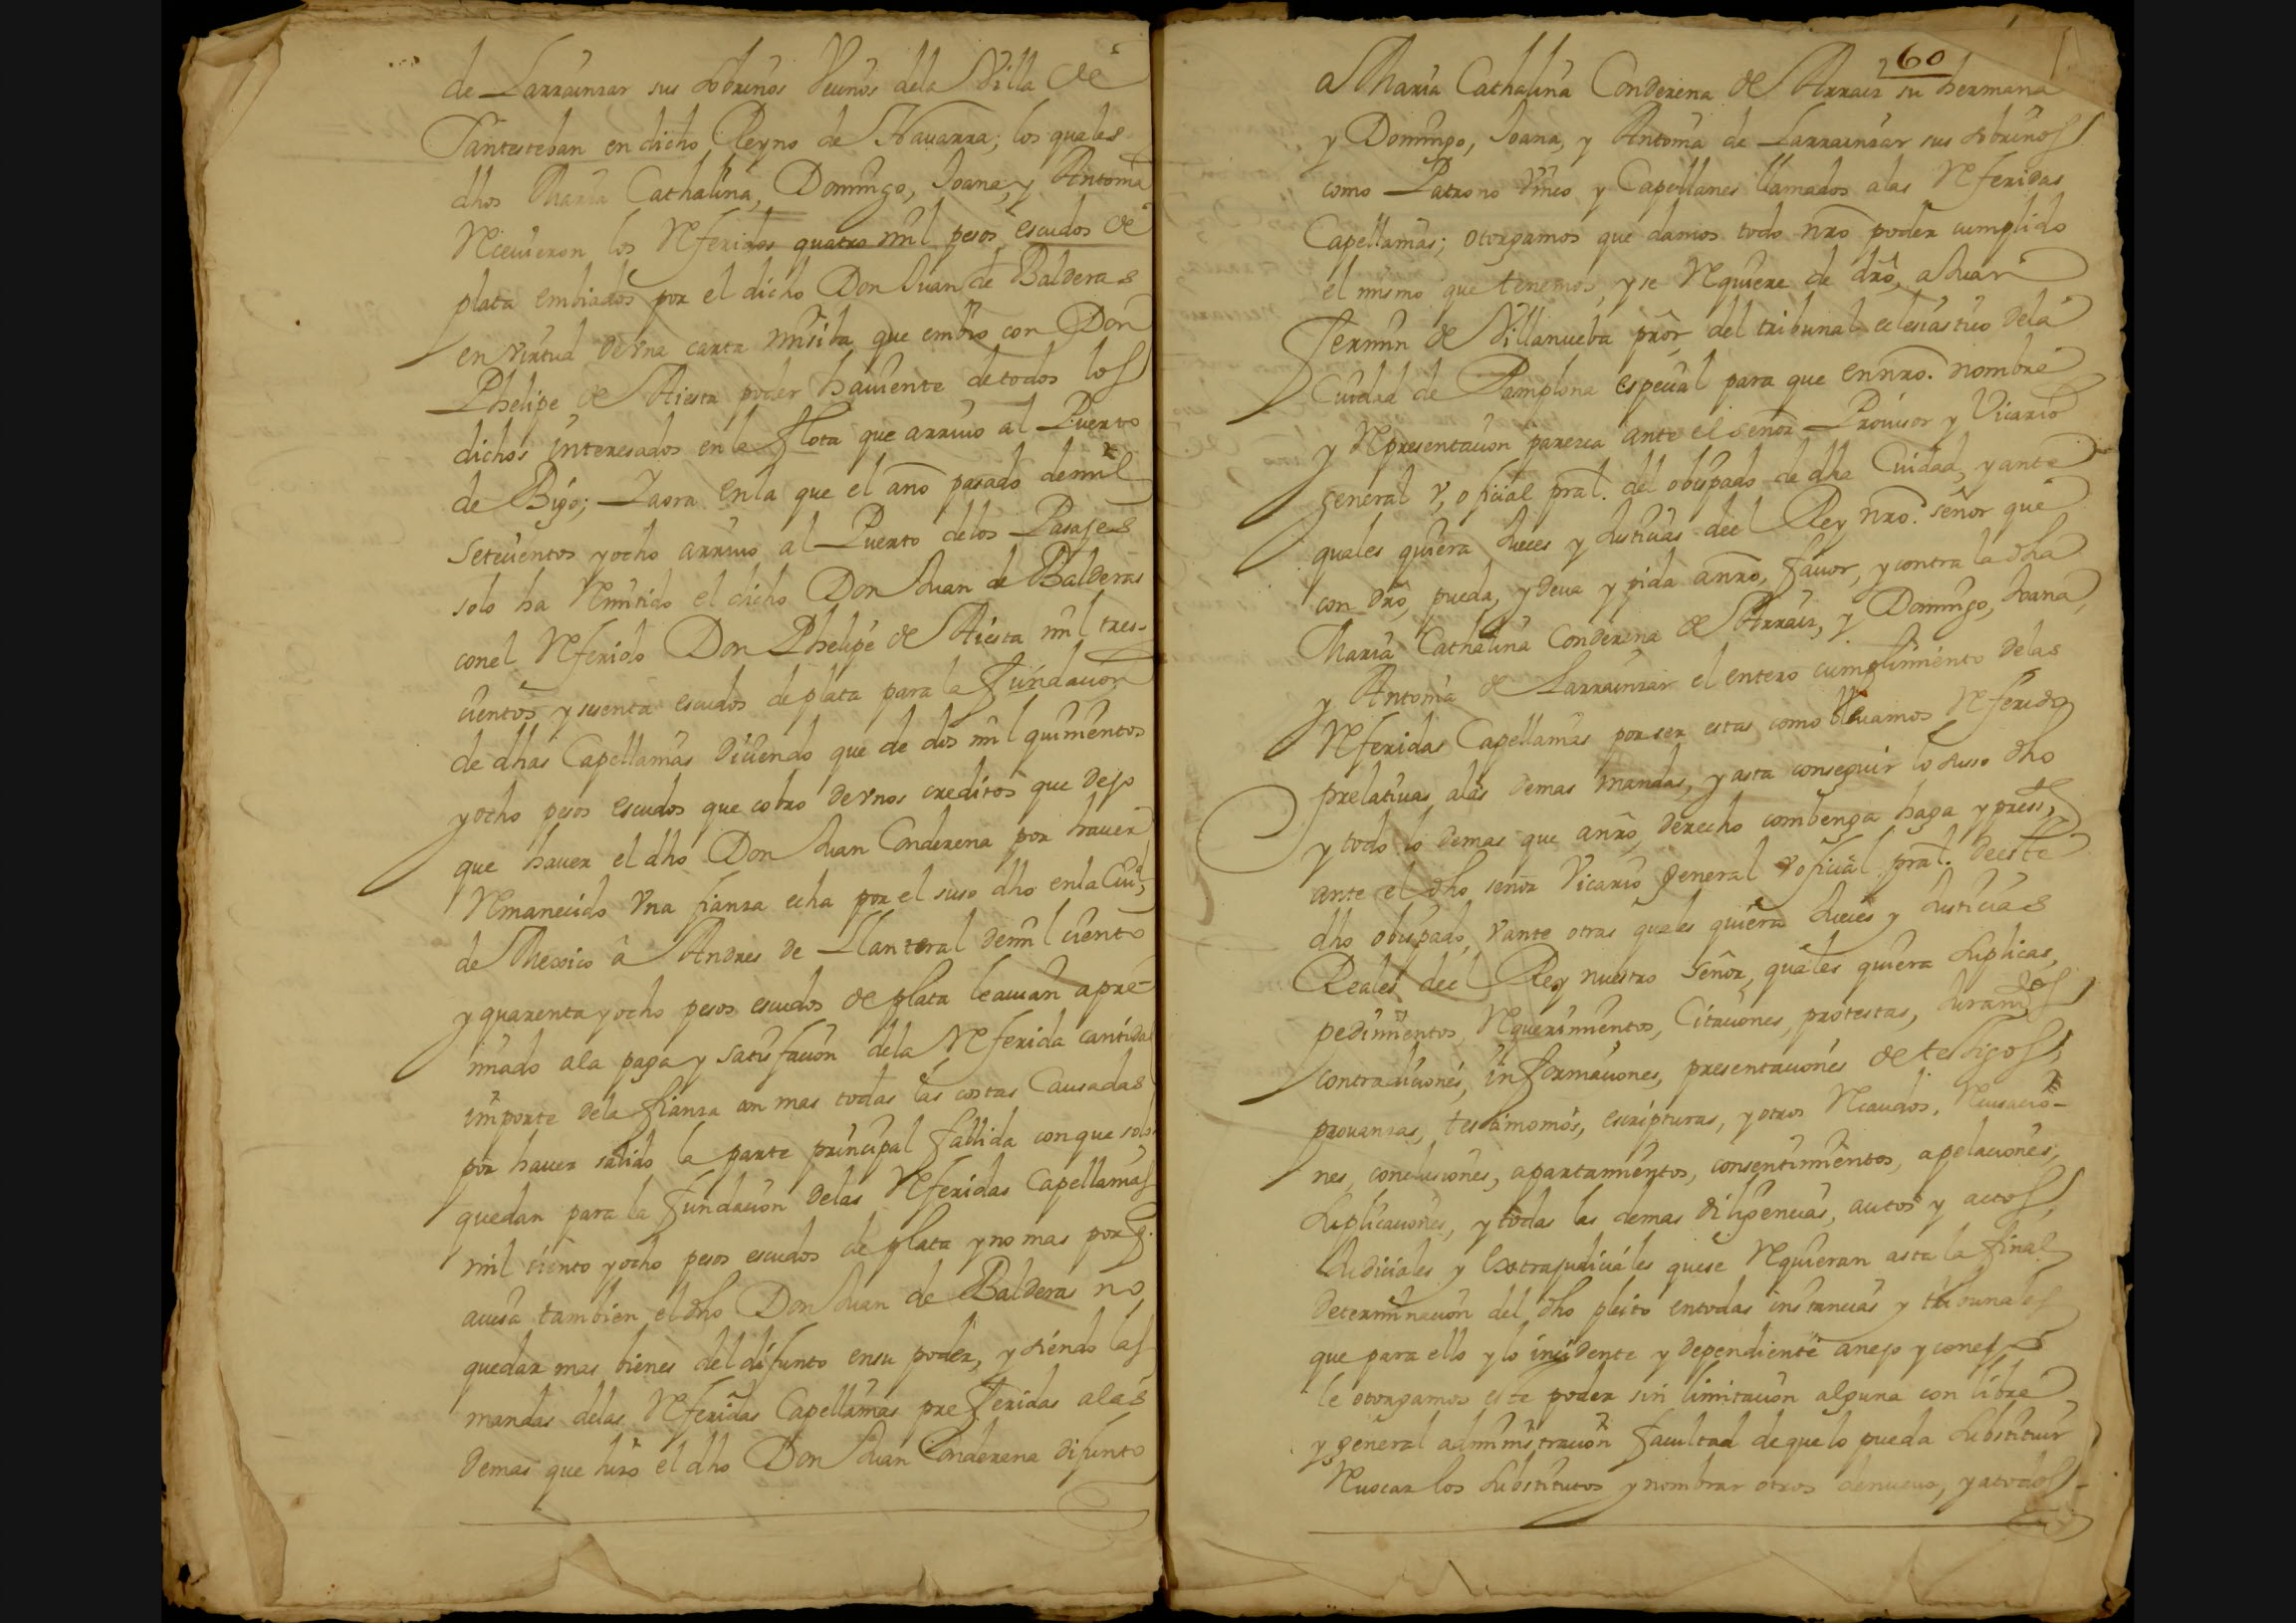 de Larrainzar sus sobrinos Vecinos dela Villa de
Santesteban en dicho Reyno de Navarra; los quales
dhos Maria Cathalina, Domingo, Joana, y Antonia
Recivieron los Referidos quatro mil pesos escudos de
plata embiados por el dicho Don Juan de Balderas
en virtud de vna carta misiba que embio con Don
Phelipe de Aiesta poder haviente de todos los
dichos interesados en la flota que arrivo al Puerto
de Bigo; Y aora en la que el año pasado de mil
setecientos y ocho arrivo al Puerto delos Pasajes
solo ha Remitido el dicho Don Juan de Balderas
con el Referido Don Phelipe de Aiesta mil tres-
cientos y sesenta escudos de plata para la fundacion
de dhas Capellanias diciendo que de dos mil quinientos
y ocho pesos escudos que cobro de vnos creditos que dejo
que haver el dho Don Juan Conderena por haver
Remanecido vna fianza echa por el suso dho en la Ciud
de Mexico â Andres de Llanteral de mil ciento
y quarenta y ocho pesos escudos de plata le avian apre-
miado ala paga y satisfacion dela Referida cantidad
importe dela fianza con mas todas las costas Causadas
por haver salido la parte principal fallida con que solo
quedan para la fundacion delas Referidas Capellanias
mil ciento y ocho pesos escudos de plata y no mas por q.
avisa tambien el dho Don Juan de Balderas no
quedar mas bienes del difunto en su poder, y siendo las
mandas delas Referidas Capellanias preferidas alas
demas que hizo el dho Don Juan Conderena difunto
60
a Maria Cathalina Conderena de Arraiz su hermana
y Domingo, Joana, y Antonia de Larrainzar sus sobrinos
como Patrono vnico y Capellanes llamados alas Referidas
Capellanias; otorgamos que damos todo nro poder cumplido
el mismo que tenemos, y se Requiere de dro, a Juan
Fermin de Villanueba pror del tribunal eclesiastico dela
Ciudad de Pamplona especial para que en nro. nombre
y Representacion paresca ante el señor Provisor y Vicario
general y, oficial pral. del obispado de dha Ciudad, y ante
quales quiera Jueces y Justicias del Rey nro. señor que
con dro, pueda, y deva y pida a nro, favor, y contra la dha
Maria Cathalina Conderena de Arraiz, y Domingo, Joana,
y Antonia de Larrainzar el entero cumplimiento delas
Referidas Capellanias por ser estas como llevamos Referido
prelativas alas demas mandas, y asta conseguir lo suso dho
y todo lo demas que a nro, derecho combenga haga y prest,
ante el dho señor Vicario general y oficial pral. de este
dho obispado, y ante otras quales quiera Jueces y Justicias
Reales del Rey nuestro señor, quales quiera suplicas,
pedimientos, Requerimientos, Citaciones, protestas, Juramtos
contradiciones, informaciones, presentaciones de testigos,
provanzas, testimonios, escripturas, y otros Recaudos, Recusacio-
nes, conclusiones, apartamientos, consentimientos, apelaciones,
suplicaciones, y todas las demas diligencias, autos y actos
Judiciales y Extrajudiciales que se Requieran asta la final
determinacion del dho pleito en todas instancias y tribunales
que para ello y lo incidente y dependiente anejo y conejo
le otorgamos este poder sin limitacion alguna con libre
y general administracion facultad de que lo pueda substituir
Revocar los substitutos y nombrar otros de nuevo, y a todos